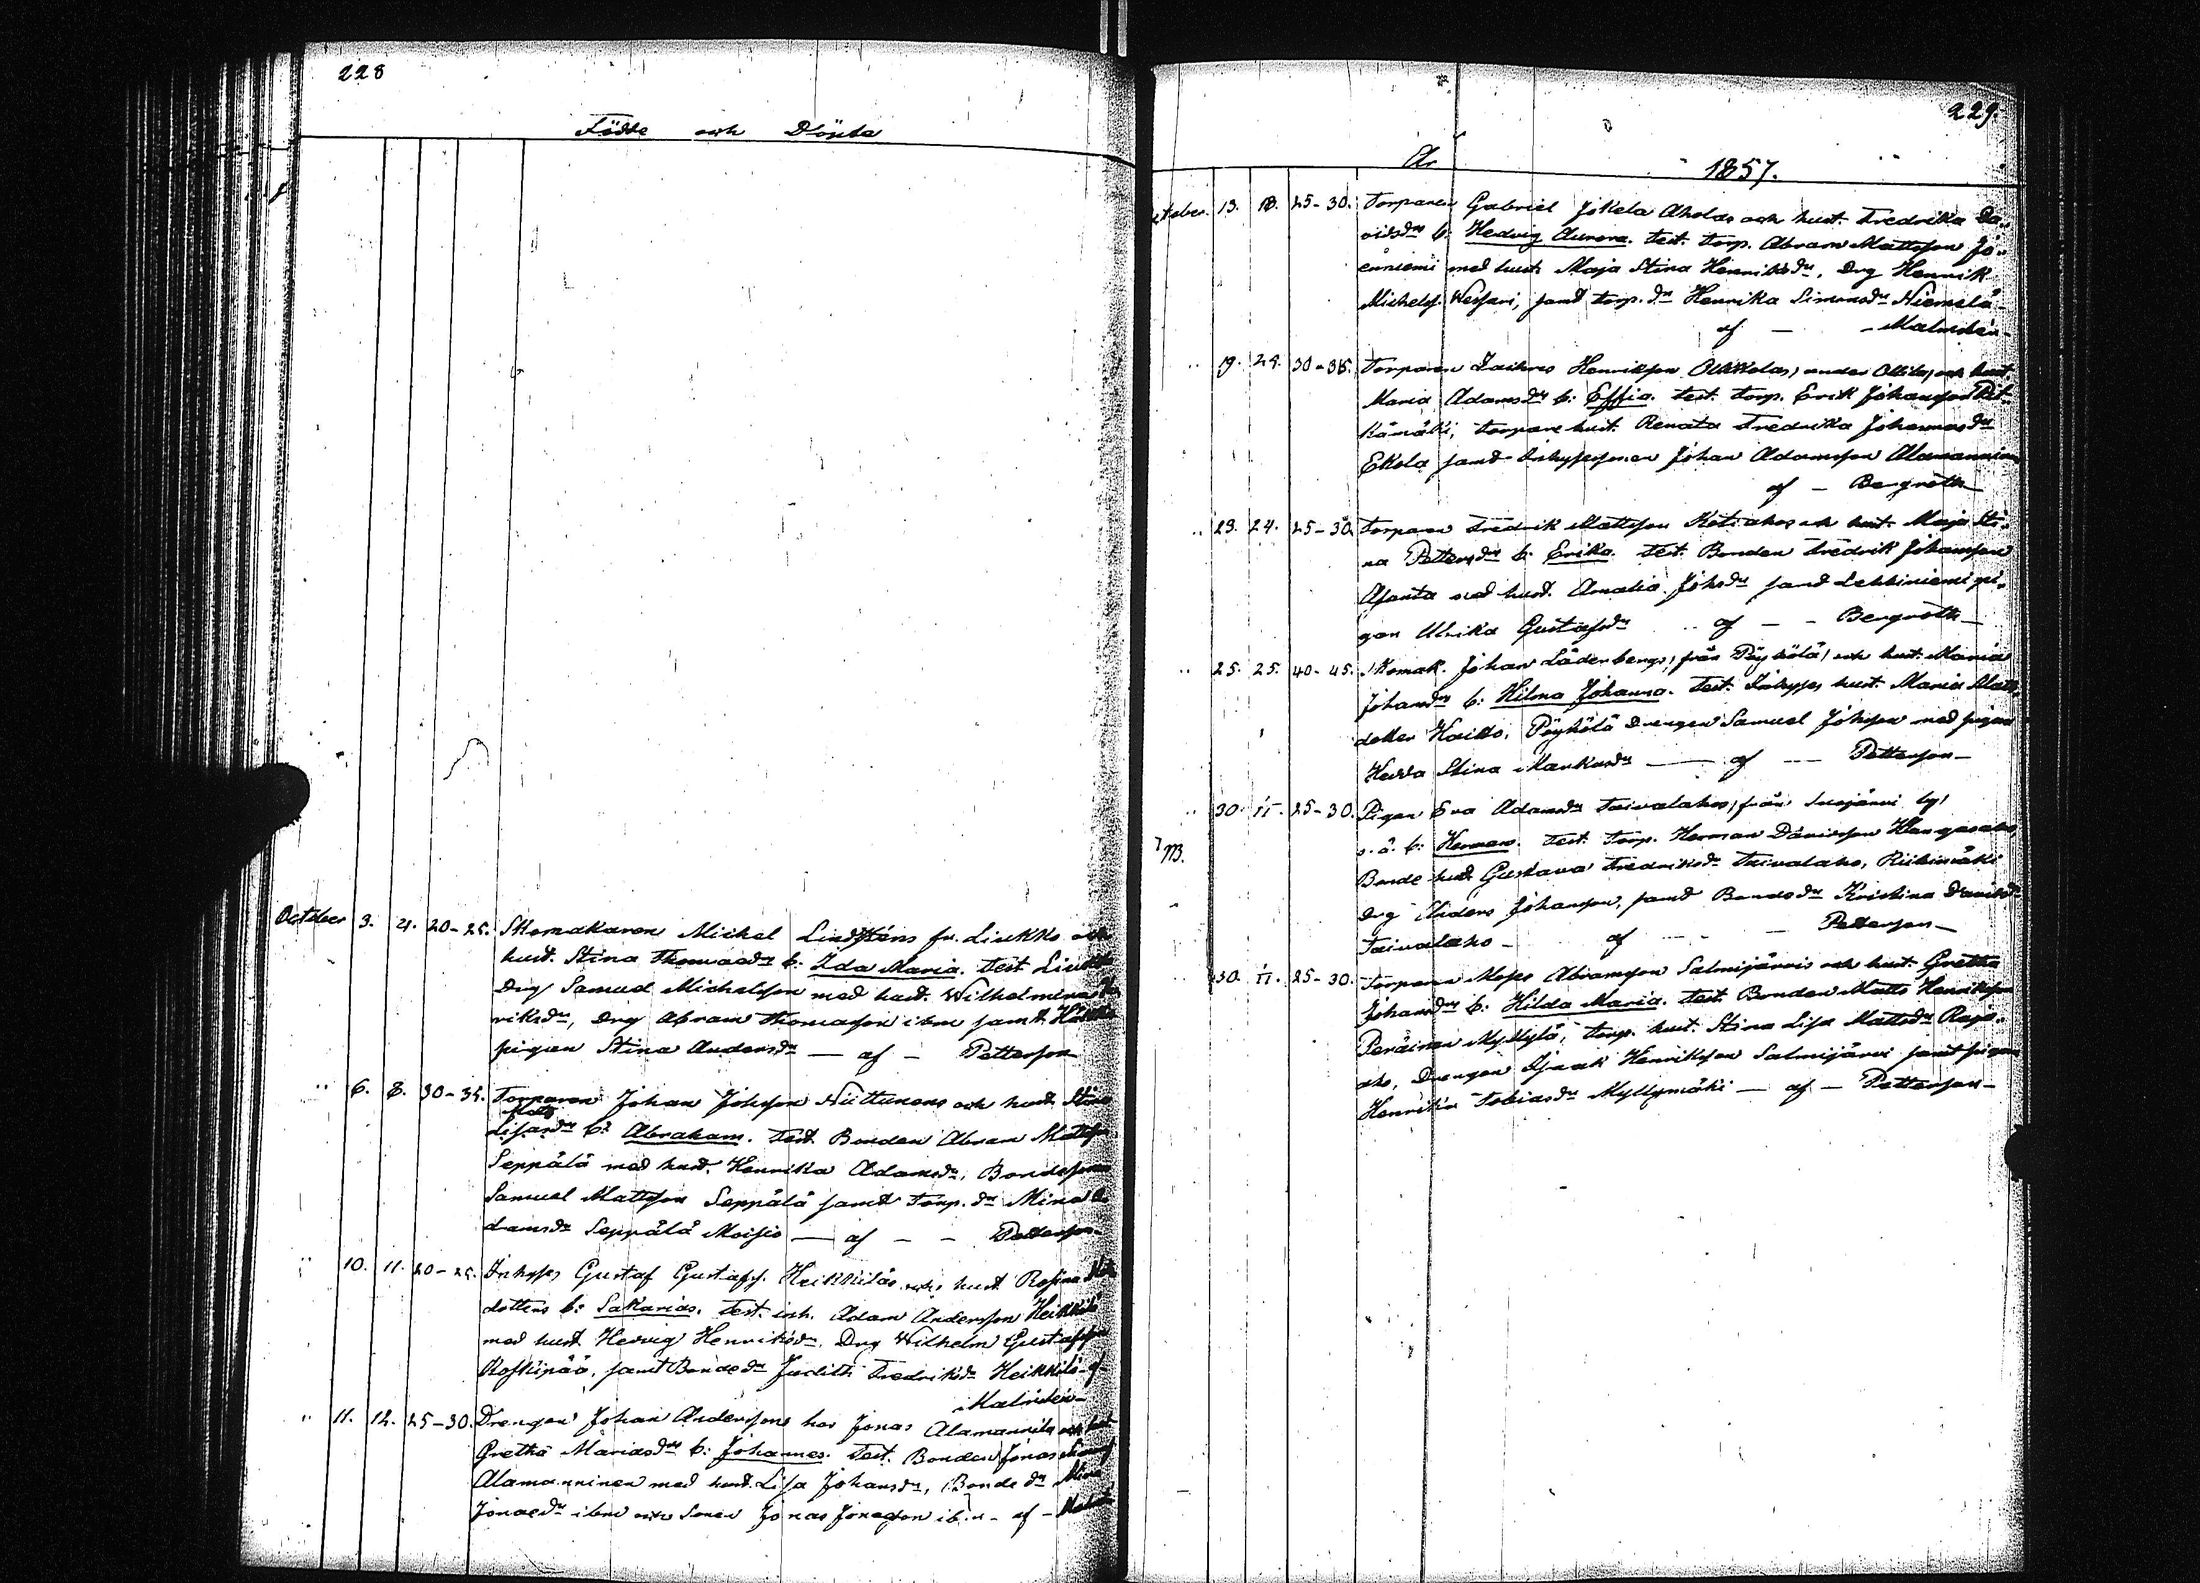 228
Födde och Döpta
October 3. 4. 20-25. Skomakaren Michel Lindsténs fr. Liukko och
hust. Stina Thomasdrs b: Ida Maria. Test. Liukko
Drg Samuel Michelsson med hust. Wilhelmina
riksdr, Drg Abram Thomasson ibm samt
pigan Stina Andersdr — af — Petterson
" 6. 8. 30-35. Torparen Johan Johsson Niittunens och hust. Stina
Mats
Lisasdrs b: Abraham. Test. Bonden Abram Matsson
Seppälä med hust. Henrika Adamsdr, Bondesonen
Samuel Mattsson Seppälä samt Torp. dr Mina A
damsdr Seppälä Moisio — af — — Petterson
" 10. 11. 20-25. Inhyses Gustaf Gustafss. Heikkiläs och hust. Rosina
dotters b: Sakarias. Test. inh. Adam Andersson Heikkilä
med hust. Hedvig Henriksdr. Drg Wilhelm Gustafsson
samt Bonde dr Judith Fredriksdr Heikkilä - af
Malmdén
" 11. 12. 25-30. Drengen Johan Anderssons hos Jonas Alamannila och hust.
Gretha Mariasdrs b: Johannes. Test. Bonden Jonas
Alamanninen med hust. Lisa Johansdr, Bonde dr Mina
Jonaedr ibm och Sonen Jonas Jonasson ibm - af -
229.
År 1857.
October. 13. 18. 25-30. Torparen Gabriel Jokela Aholas och hust. Fredrika Da-
vidsdrs b: Hedvig Aurora. Test. Torp. Abram Mattsson Jo-
enniemi med hust. Maja Stina Henriksdr, Drg Henrik
Michelss. samt torp. dr Henrika Simonsdr Niemelä
af — — Malmdén
" 19. 24. 30-35. Torparen Henriksson och hust.
Maria Adamsdrs b: Effia. Test. Torp. Erik Johansson Pit-
kämäki, torpare hust. Renata Fredrika Johannesdr
Ekola samt Inhysessonen Johan Adamsson Alamanninen
af — Bergroth
" 23. 24. 25-30. Torparen Fredrik Mattsson Kotiahos och hust. Maja Sti-
na Pettersdrs b: Erika. Test. Bonden Fredrik Johansson
Asunta med hust. Amalia Johsdr samt Lehtiniemi pi-
gan Ulrika Gustafsdr af — — Bergroth
" 25. 25. 40-45. Skomak. Johan Läderbergs, från Pöyhölä, och hust. Maria
Johansdrs b: Hilma Johanna. Test. Inhyses hust. Maria Mats
dotter Haikko, Pöyhölä Drengen Samuel Johsson med pigan
Hedda Stina Markusdr — af — Petterson
" 30. 11. 25-30. Pigan Eva Adamsdrs Taivalahos, från by,
o.ä. b: Herman. Test. Torp. Herman Davidsson Kangasaho
Bonde hust. Gustava Fredriksdr Taivalaho, Riihimäki
Drg Anders Johansson, samt Bonde dr Kristina Davidsdr
Taivalaho — af — — Petterson
" 30. 11. 25-30. Torparen Moses Abramsson Salmijärvis och hust. Gretha
Johansdrs b: Hilda Maria. Test. Bonden Matts Henriksson
Peräinen Myllylä, Torp. hust. Stina Lisa Mattsdr Raja-
aho, Drengen Isaak Henriksson Salmijärvi samt pigan
Henrika Tobiasdr Myllymäki — af — Petterson